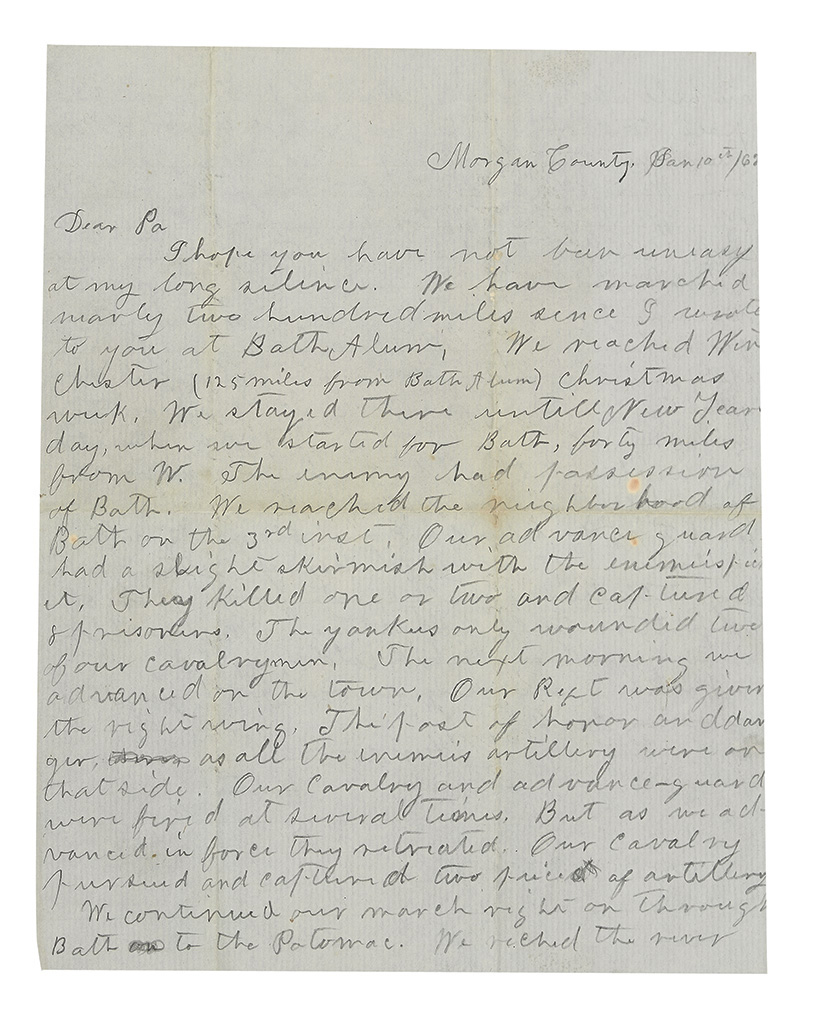 Morgan County, Jan 10th/62
Dear Pa
I hope you have not been uneasy
at my long silence. We have marched
nearly two hundred miles sence I wrote
to you at Bath Alum, We reached Win
chester (125 miles from Bath Alum) Christmas
week. We stayed there untill New Year
day, when we started for Bath, forty miles
from W. The enemy had possession
of Bath. We reached the neighborhood of
Bath on the 3rd inst. Our advance guard
had a slight skirmish with the enemies pick
et, They killed one or two and captured
8 prisoners. The yankees only wounded two
of our cavalrymen, The next morning we
advanced on the town, Our Regt was given
the right wing. The post of honor and dan
ger, as all the enemies artillery were on
that side. Our Cavalry and advance-guard
were fired at several times. But as we ad-
vanced in force they retreated. Our Cavalry
pursued and captured two pieces of artillery
We continued our march right on through
Bath to the Potomac. We reched the river